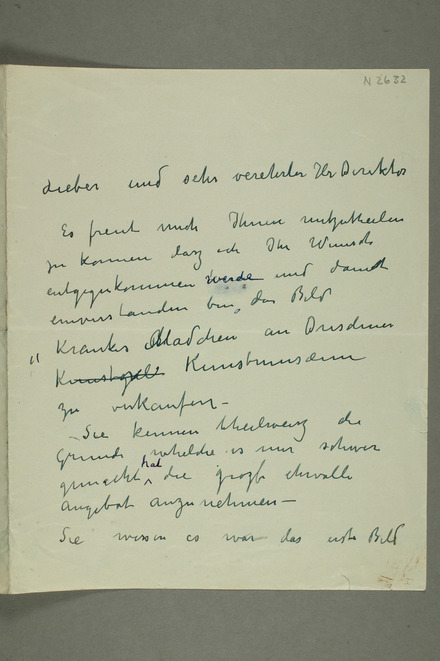 N 2682
Lieber und sehr verehrter Hr Direktor
Es freut mich Ihnen mitzutheilen
zu können dasz ich Ihr Wunsch
entgegenkommen werde und damit
einverstanden bin, das Bild
" Kranker Mädchen an Dresdner
Kunstmuseum
zu verkaufen –
– Sie kennen theilweisz die
Grunde whelche es mir schwer
gemacht hat die grosze ehrvolle
angebot anzunehmen –
Sie wissen es war das erste Bild